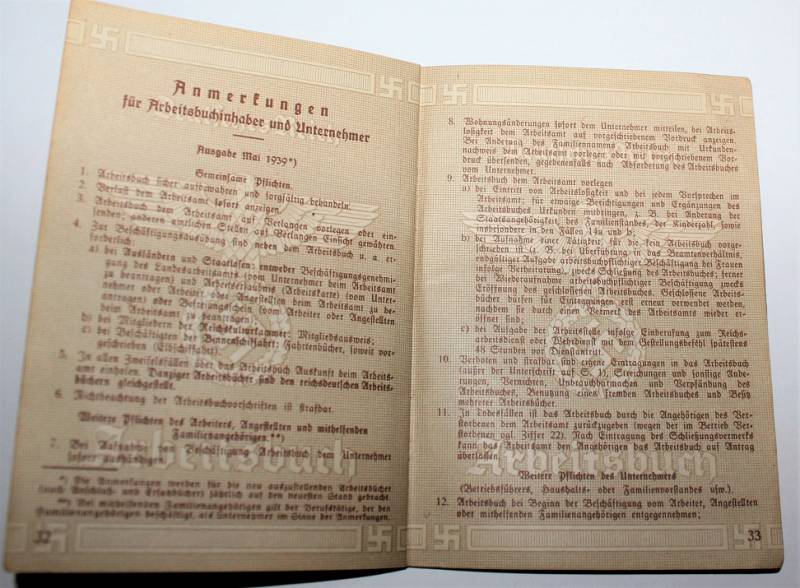 Anmerkungen
für Arbeitsbuchinhaber und Unternehmer
Ausgabe Mai 1939*)
Gemeinsame Pflichten.
1. Arbeitsbuch sicher aufbewahren und sorgfältig behandeln.
2. Verlust dem Arbeitsamt sofort anzeigen.
3. Arbeitsbuch dem Arbeitsamt auf Verlangen vorlegen oder ein-
senden; anderen amtlichen Stellen auf Verlangen Einsicht gewähren.
4. Zur Beschäftigungsausübung sind neben dem Arbeitsbuch u. a. er-
forderlich:
a) bei Ausländern und Staatlosen: entweder Beschäftigungsgenehmi-
gung des Landesarbeitsamts (vom Unternehmer beim Arbeitsamt
zu beantragen) und Arbeitserlaubnis (Arbeitskarte) (vom Unter-
nehmer oder Arbeiter oder Angestellten beim Arbeitsamt zu be-
antragen) oder Befreiungsschein (vom Arbeiter oder Angestellten
beim Arbeitsamt zu beantragen);
b) bei Mitgliedern der Reichskulturkammer: Mitgliedsausweis;
c) bei Beschäftigten der Binnenschiffahrt: Fahrtenbücher, soweit vor-
geschrieben (Elbschiffahrt).
5. In allen Zweifelsfällen über das Arbeitsbuch Auskunft beim Arbeits-
amt einholen. Danziger Arbeitsbücher sind den reichsdeutschen Arbeits-
büchern gleichgestellt.
6. Nichtbeachtung der Arbeitsbuchvorschriften ist strafbar.
Weitere Pflichten des Arbeiters, Angestellten und mithelfenden
Familienangehörigen.**)
7. Bei Aufnahme der Beschäftigung Arbeitsbuch dem Unternehmer
sofort aushändigen.
*) Die Anmerkungen werden für die neu auszustellenden Arbeitsbücher
(auch Anschluß- und Ersatzbücher) jährlich auf den neuesten Stand gebracht.
**) Bei mithelfenden Familienangehörigen gilt der Berufstätige, der den
Familienangehörigen beschäftigt, als Unternehmer im Sinne der Anmerkungen.
Arbeitsbuch
32
8. Wohnungsänderungen sofort dem Unternehmer mitteilen, bei Arbeits-
losigkeit dem Arbeitsamt auf vorgeschriebenem Vordruck anzeigen.
Bei Änderung des Familiennamens Arbeitsbuch mit Urkunden-
nachweis dem Arbeitsamt vorlegen oder mit vorgeschriebenem Vor-
druck übersenden, gegebenenfalls nach Abforderung des Arbeitsbuches
vom Unternehmer.
9. Arbeitsbuch dem Arbeitsamt vorlegen
a) bei Eintritt von Arbeitslosigkeit und bei jedem Vorsprechen im
Arbeitsamt; für etwaige Berichtigungen und Ergänzungen des
Arbeitsbuches Urkunden mitbringen, z. B. bei Änderung der
Staatsangehörigkeit, des Familienstandes, der Kinderzahl, sowie
insbesondere in den Fällen 14u und b;
b) bei Aufnahme einer Tätigkeit, für die kein Arbeitsbuch vorge-
schrieben ist (z. B. bei Überführung in das Beamtenverhältnis,
endgültiger Aufgabe arbeitsbuchpflichtiger Beschäftigung bei Frauen
infolge Verheiratung), zwecks Schließung des Arbeitsbuches; ferner
bei Wiederaufnahme arbeitsbuchpflichtiger Beschäftigung zwecks
Eröffnung des geschlossenen Arbeitsbuches. Geschlossene Arbeits-
bücher dürfen für Eintragungen erst erneut verwendet werden,
nachdem sie durch einen Vermerk des Arbeitsamts wieder er-
öffnet sind;
c) bei Aufgabe der Arbeitsstelle infolge Einberufung zum Reichs-
arbeitsdienst oder Wehrdienst mit dem Gestellungsbefehl spätestens
48 Stunden vor Dienstantritt.
10. Verboten und strafbar sind eigene Eintragungen in das Arbeitsbuch
(außer der Unterschrift auf S. 1), Streichungen und sonstige Ände-
rungen, Vernichten, Unbrauchbarmachen und Verpfändung des
Arbeitsbuches, Benutzung eines fremden Arbeitsbuches und Besitz
mehrerer Arbeitsbücher.
11. In Todesfällen ist das Arbeitsbuch durch die Angehörigen des Ver-
storbenen dem Arbeitsamt zurückzugeben (wegen der im Betrieb Ver-
storbenen vgl. Ziffer 22). Nach Eintragung des Schließungsvermerks
kann das Arbeitsamt den Angehörigen das Arbeitsbuch auf Antrag
überlassen.
Weitere Pflichten des Unternehmers
(Betriebsführers, Haushalts- oder Familienvorstandes usw.).
12. Arbeitsbuch bei Beginn der Beschäftigung vom Arbeiter, Angestellten
oder mithelfenden Familienangehörigen entgegennehmen;
Arbeitsbuch
33